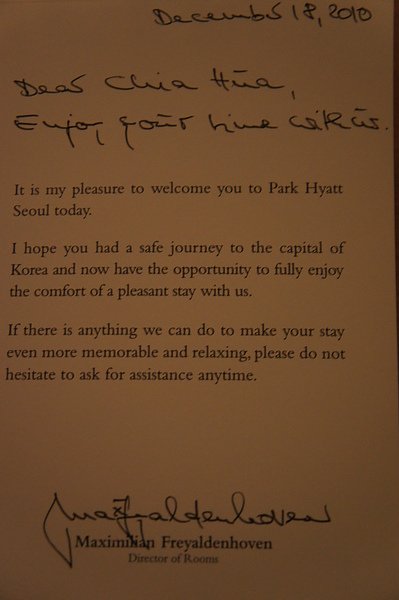 December 18, 2010
Dear Chia Hua,
Enjoy your time with us.
It is my pleasure to welcome you to Park Hyatt
Seoul today.
I hope you had a safe journey to the capital of
Korea and now have the opportunity to fully enjoy
the comfort of a pleasant stay with us.
If there is anything we can do to make your stay
even more memorable and relaxing, please do not
hesitate to ask for assistance anytime.
Maximilian Freyaldenhoven
Director of Rooms